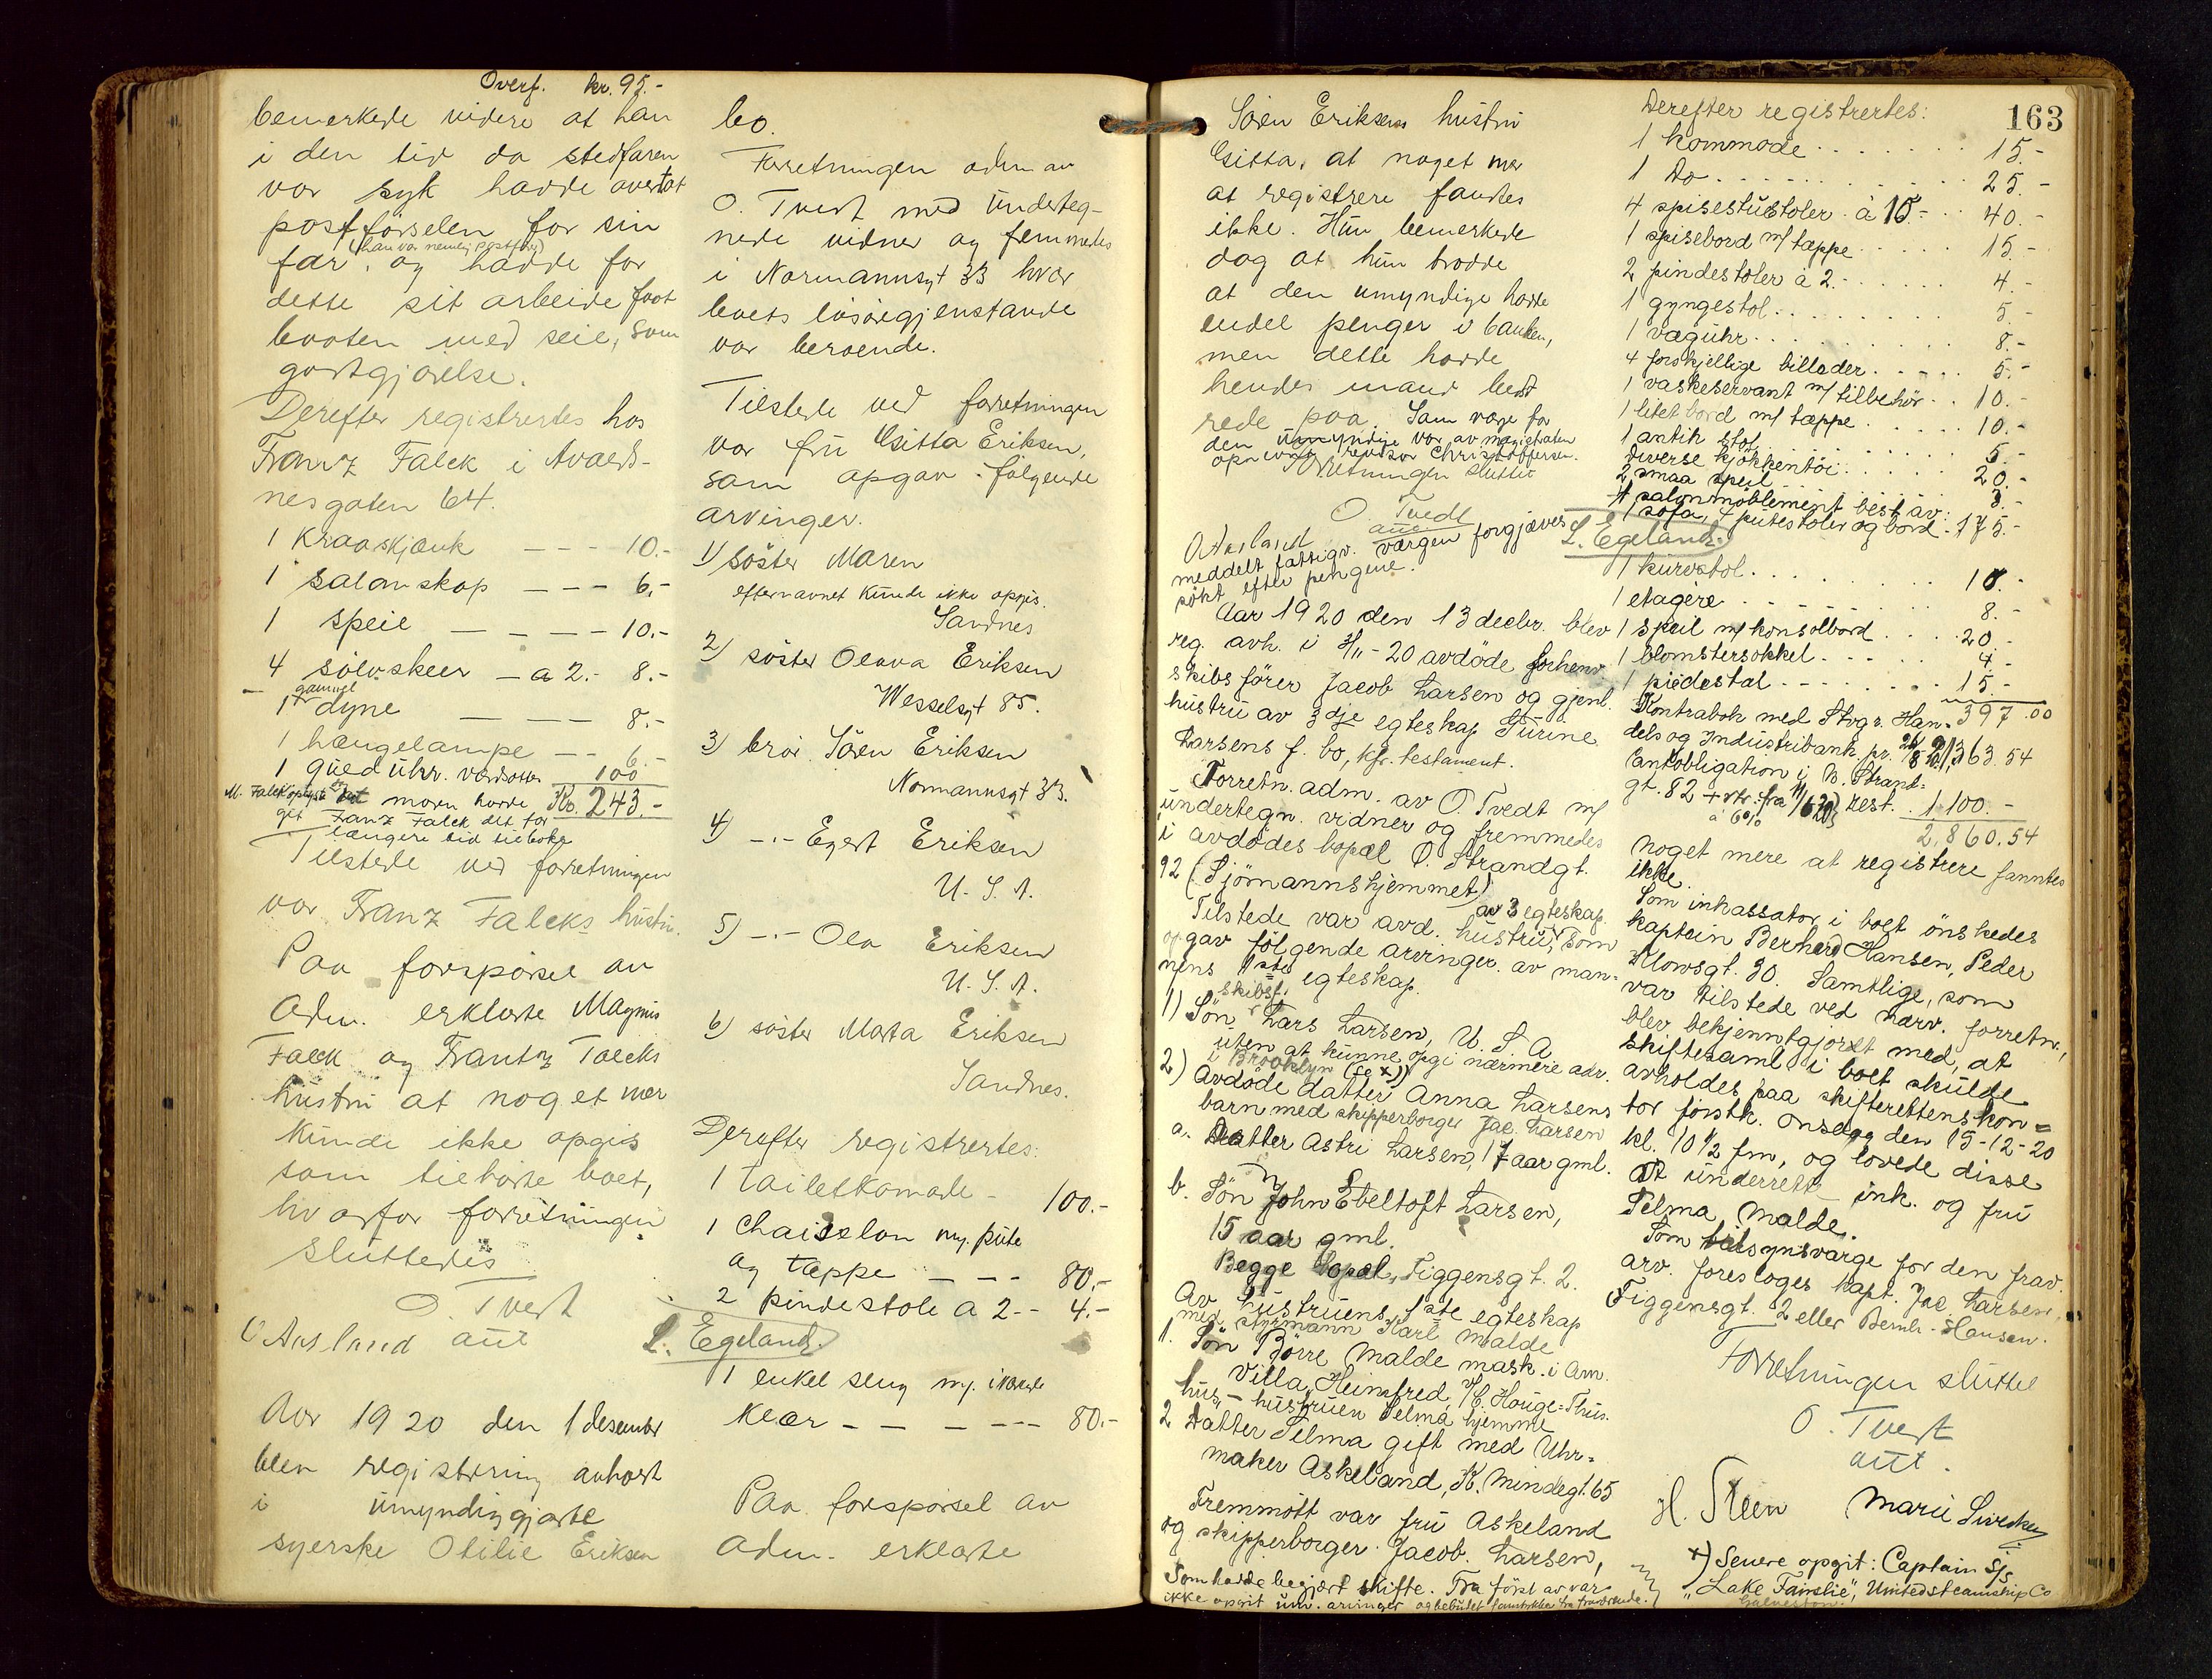 Overf. kr. 95.-
bemerkede videre at han
i den tid da stedfaren
var syk hadde overtat
postförselen for sin
(han var nemlig postförer)
far, og hadde for
dette sit arbeide faat
baaten med seil, som
godtgjörelse.
Derefter registrertes hos
Franz Falck i Avalds-
nesgaten 64.
1 Kraaskjænk - - - 10.-
1 salonskap - - - 6.-
1 speil - - - - 10.-
4 sölvskeer - a 2.- 8.-
1 gammel dyne - - - 8.-
1 hængelampe - - 6.-
1 guld uhr. værdsattes 100
M. Falck oplyste at moren hadde Kr. 243.-
git Franz Falck det for
længere tid tilbake
Tilstede ved forretningen
var Franz Falcks hustru.
Paa forspörsel av
Adm. erklærte Magnus
Falck og Frantz Falcks
hustru at noget mer
kunde ikke opgis
som tilhörte boet,
hvorfor forretningen
sluttedes
O. Tvedt
O Aasland aut L. Egeland
Aar 1920 den 1 desember
blev registrering avholdt
i umyndiggjorte
syerske Otilie Eriksen
bo.
Forretningen adm av
O. Tvedt med underteg-
nede vidner og fremmedes
i Normannsgt 33 hvor
boets lösöregjenstande
var beroende.
Tilstede ved forretningen
var fru Gitta Eriksen,
som opgav fölgende
arvinger.
1) söster Maren
efternavnet kunde ikke opgis.
Sandnes
2) söster Olava Eriksen
Wesselsgt 85.
3) bror Sören Eriksen
Normannsgt 33.
4) -.- Egert Eriksen
U. S. A.
5) -.- Ola Eriksen
U. S. A.
6) söster Marta Eriksen
Sandnes.
Derefter registrertes:
1 toiletkomode - 100.-
1 Chaiselon m/ pute
og tæppe - - - 80.-
2 pindestole a 2.- 4.-
1 enkel seng m/ iværende
Klær - - - --- 80.-
Paa forspörsel av
Adm. erklærte
Sören Eriksens hustru
Gitta, at noget mer
at registrere fandtes
ikke. Hun bemerkede
dog at hun trodde
at den umyndige hadde
endel penger i banken,
men dette hadde
hendes mand bedst
rede paa. Som værge for
den umyndige var av magistraten
opnævnt revisor Christoffersen.
Forretningen sluttet
O. Tvedt
aut
O Aasland L. Egeland
meddelt fattigv. værgen forgjæves
sökt efter pengene.
Aar 1920 den 13 decbr. blev
reg. avh. i 3/11-20 avdöde forhenv.
skibsförer Jacob Larsen og gjenl.
hustru av 3dje egteskap Gurine
Larsens f. bo, kfr. testament.
Forretn. adm. av O. Tvedt m/
undertegn. vidner og fremmedes
i avdödes bopæl Ö. Strandgt.
92 (Sjömannshjemmet)
av 3 egteskap
Tilstede var avd. hustru, som
opgav fölgende arvinger. av man-
nens 1ste egteskap.
skibsf.
1) Sön Lars Larsen, U. S A
uten at kunne opgi nærmere adr.
i Brooklyn (se x))
2) Avdöde datter Anna Larsens
barn med skipperborger Jac. Larsen
a. Datter Astri Larsen, 17 aar gml.
b. Sön John Ebeltoft Larsen,
15 aar gml.
Begge bopæl, Figgensgt. 2.
Av hustruens 1ste egteskap
med styrmann Karl Malde
1. Sön Börre Malde mask. i Am.
Villa Heimfred, v/ C. Hauge-Thus.
hus - hustruen Selma hjemme
2 Datter Selma gift med Uhr-
maker Askeland, K. Mindegt. 65
Fremmött var fru Askeland
og skipperborger Jacob Larsen,
som hadde begjært skifte. Fra först av var
ikke opgit um. arvinger og
163
Derefter registrertes:
1 kommode . . . . . 15.-
1 Do . . . . . . . 25.-
4 spisestustoler. à 10.- . . 40.-
1 spisebord m/ tæppe . . . . 15.-
2 pindestoler à 2.- . . . . 4.-
1 gyngestol . . . . . . 5.-
1 væguhr . . . . . . . 8.-
4 forskjellige billeder . . . . 5.-
1 vaskeservant m/ tilbehör . . 10.-
1 litet bord m/ tæppe . . . . 10.-
1 antik stol . . . . . . 5.-
Diverse kjökkentöi . . . . . 20.-
2 smaa speil . . . . . . 3.-
1 salonmöblement best. av:
1 sofa, 4 putestoler og bord - 175.-
1 kurvstol . . . . . . . 10.-
1 etagère . . . . . . . 8.-
1 speil m/ konsolbord . . . . 20.-
1 blomstersokkel . . . . . 4.-
1 piedestal . . . . . . . 15.-
397.00
Kontrabok med Stvgr. Han-
dels og Industribank pr. 1,363.54
Pantobligation i Ö. Strand-
gt. 82 + rtr. fra 11/6 20 rest. 1100.-
à 6%
2,860.54
Noget mere at registrere fanntes
ikke.
Som inkassator i boet önskedes
kaptein Bernhard Hansen, Peder
Klowsgt. 30. Samtlige, som
var tilstede ved nærv. forretn.,
blev bekjenntgjordt med, at
skiftesaml. i boet skulde
avholdes paa skifterettens kon-
tor förstk. Onsdag den 15-12-20
kl. 10 1/2 fm, og lovede disse
at underrette ink. og fru
Selma Malde.
Som tilsynsværge for den frav.
arv. foresloges kapt. Jac. Larsen,
Figgensgt. 2 eller Bernh. Hansen.
Forretningen sluttet
O. Tvedt
aut.
H. Steen Marie
x) Senere opgit: Captain S/s
"Lake Fairslie", United steamship Co
Galveston.